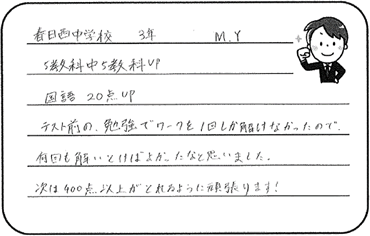 春日西中学校 3年 M.Y
5教科中5教科UP
国語 20点UP
テスト前の、勉強でワークを1回しか解けなかったので、
何回も解いとけばよかったなと思いました。
次は400点以上がとれるように頑張ります!